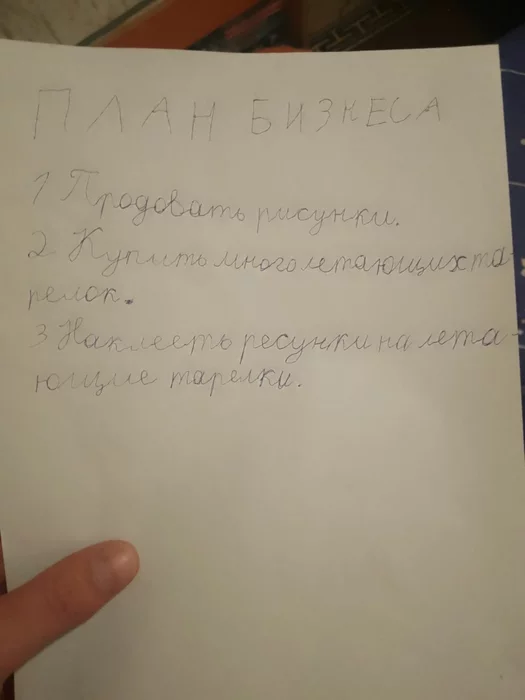 ПЛАН БИЗНЕСА
1 Продовать рисунки.
2 Купить много летающих та
релок.
3 Наклееть ресунки на лета-
ющие тарелки.